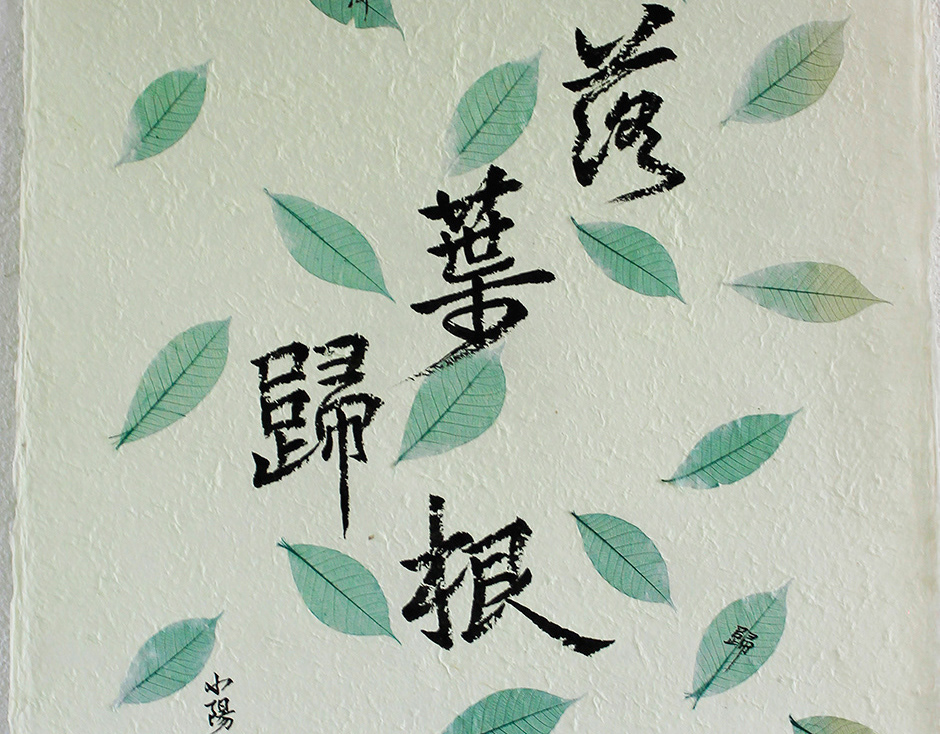 落
葉
歸
根
歸
小陽